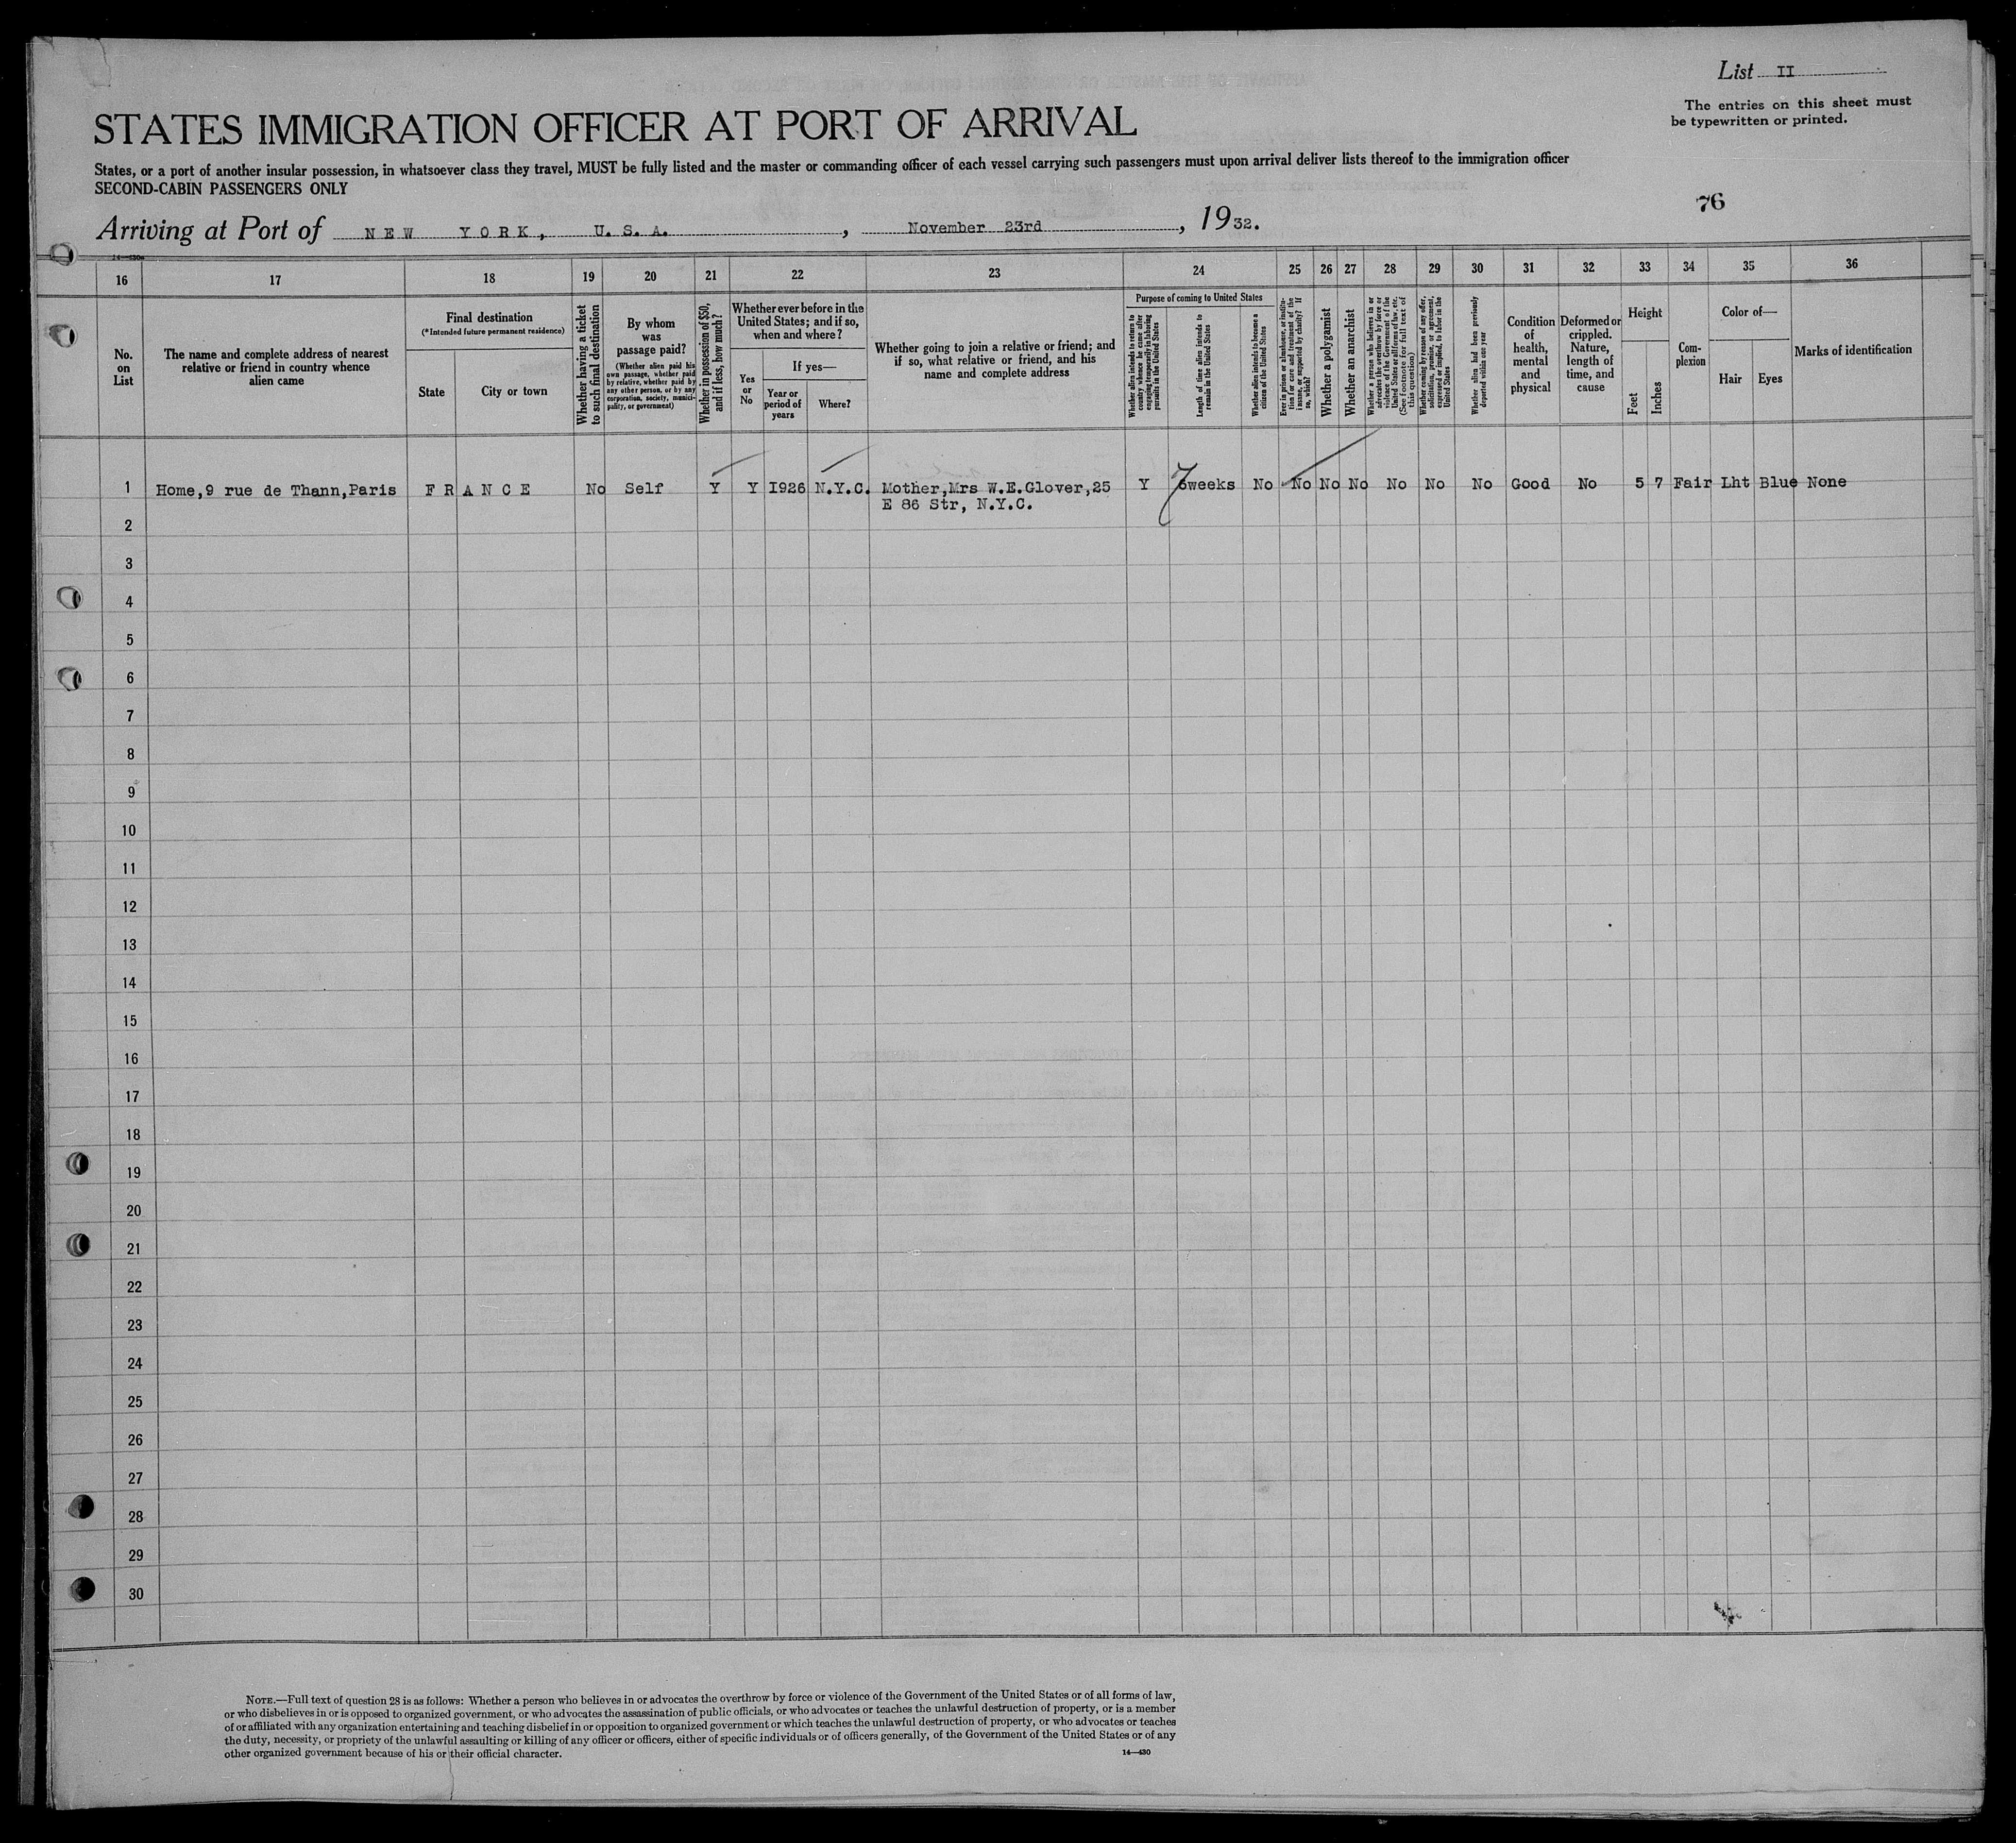 List II
The entries on this sheet must
be typewritten or printed.
STATES IMMIGRATION OFFICER AT PORT OF ARRIVAL
States, or a port of another insular possession, in whatsoever class they travel, MUST be fully listed and the master or commanding officer of each vessel carrying such passengers must upon arrival deliver lists thereof to the immigration officer
SECOND-CABIN PASSENGERS ONLY
76
Arriving at Port of NEW YORK, U. S. A. , November 23rd , 1932.
14—430
16 17 18 19 20 21 22 23 24 25 26 27 28 29 30 31 32 33 34 35 36
No.
on
List
The name and complete address of nearest
relative or friend in country whence
alien came
Final destination
(*Intended future permanent residence)
State
City or town
Whether having a ticket
to such final destination
By whom
was
passage paid?
(Whether alien paid his
own passage, whether paid
by relative, whether paid by
any other person, or by any
corporation, society, munici-
pality, or government)
Whether in possession of $50,
and if less, how much?
Whether ever before in the
United States; and if so,
when and where?
Yes
or
No
If yes—
Year or
period of
years
Where?
Whether going to join a relative or friend; and
if so, what relative or friend, and his
name and complete address
Purpose of coming to United States
Whether alien intends to return to
country whence he came after
engaging temporarily in laboring
pursuits in the United States
Length of time alien intends to
remain in the United States
Whether alien intends to become a
citizen of the United States
Ever in prison or almshouse, or institu-
tion for care and treatment of the
insane, or supported by charity? If
so, which?
Whether a polygamist
Whether an anarchist
Whether a person who believes in or
advocates the overthrow by force or
violence of the Government of the
United States or all forms of law, etc.
(See footnote for full text of
this question)
Whether coming by reason of any offer,
solicitation, promise, or agreement,
expressed or implied, to labor in the
United States
Whether alien had been previously
deported within one year
Condition
of
health,
mental
and
physical
Deformed or
crippled.
Nature,
length of
time, and
cause
Height
Feet
Inches
Com-
plexion
Color of—
Hair
Eyes
Marks of identification
1 Home,9 rue de Thann,Paris FRANCE No Self Y Y 1926 N.Y.C. Mother,Mrs W.E.Glover,25 Y 7 weeks No No No No No No No Good No 5 7 Fair Lht Blue None
E 86 Str, N.Y.C.
2
3
4
5
6
7
8
9
10
11
12
13
14
15
16
17
18
19
20
21
22
23
24
25
26
27
28
29
30
NOTE.—Full text of question 28 is as follows: Whether a person who believes in or advocates the overthrow by force or violence of the Government of the United States or of all forms of law,
or who disbelieves in or is opposed to organized government, or who advocates the assassination of public officials, or who advocates or teaches the unlawful destruction of property, or is a member
of or affiliated with any organization entertaining and teaching disbelief in or opposition to organized government or which teaches the unlawful destruction of property, or who advocates or teaches
the duty, necessity, or propriety of the unlawful assaulting or killing of any officer or officers, either of specific individuals or of officers generally, of the Government of the United States or of any
other organized government because of his or their official character.
14—430